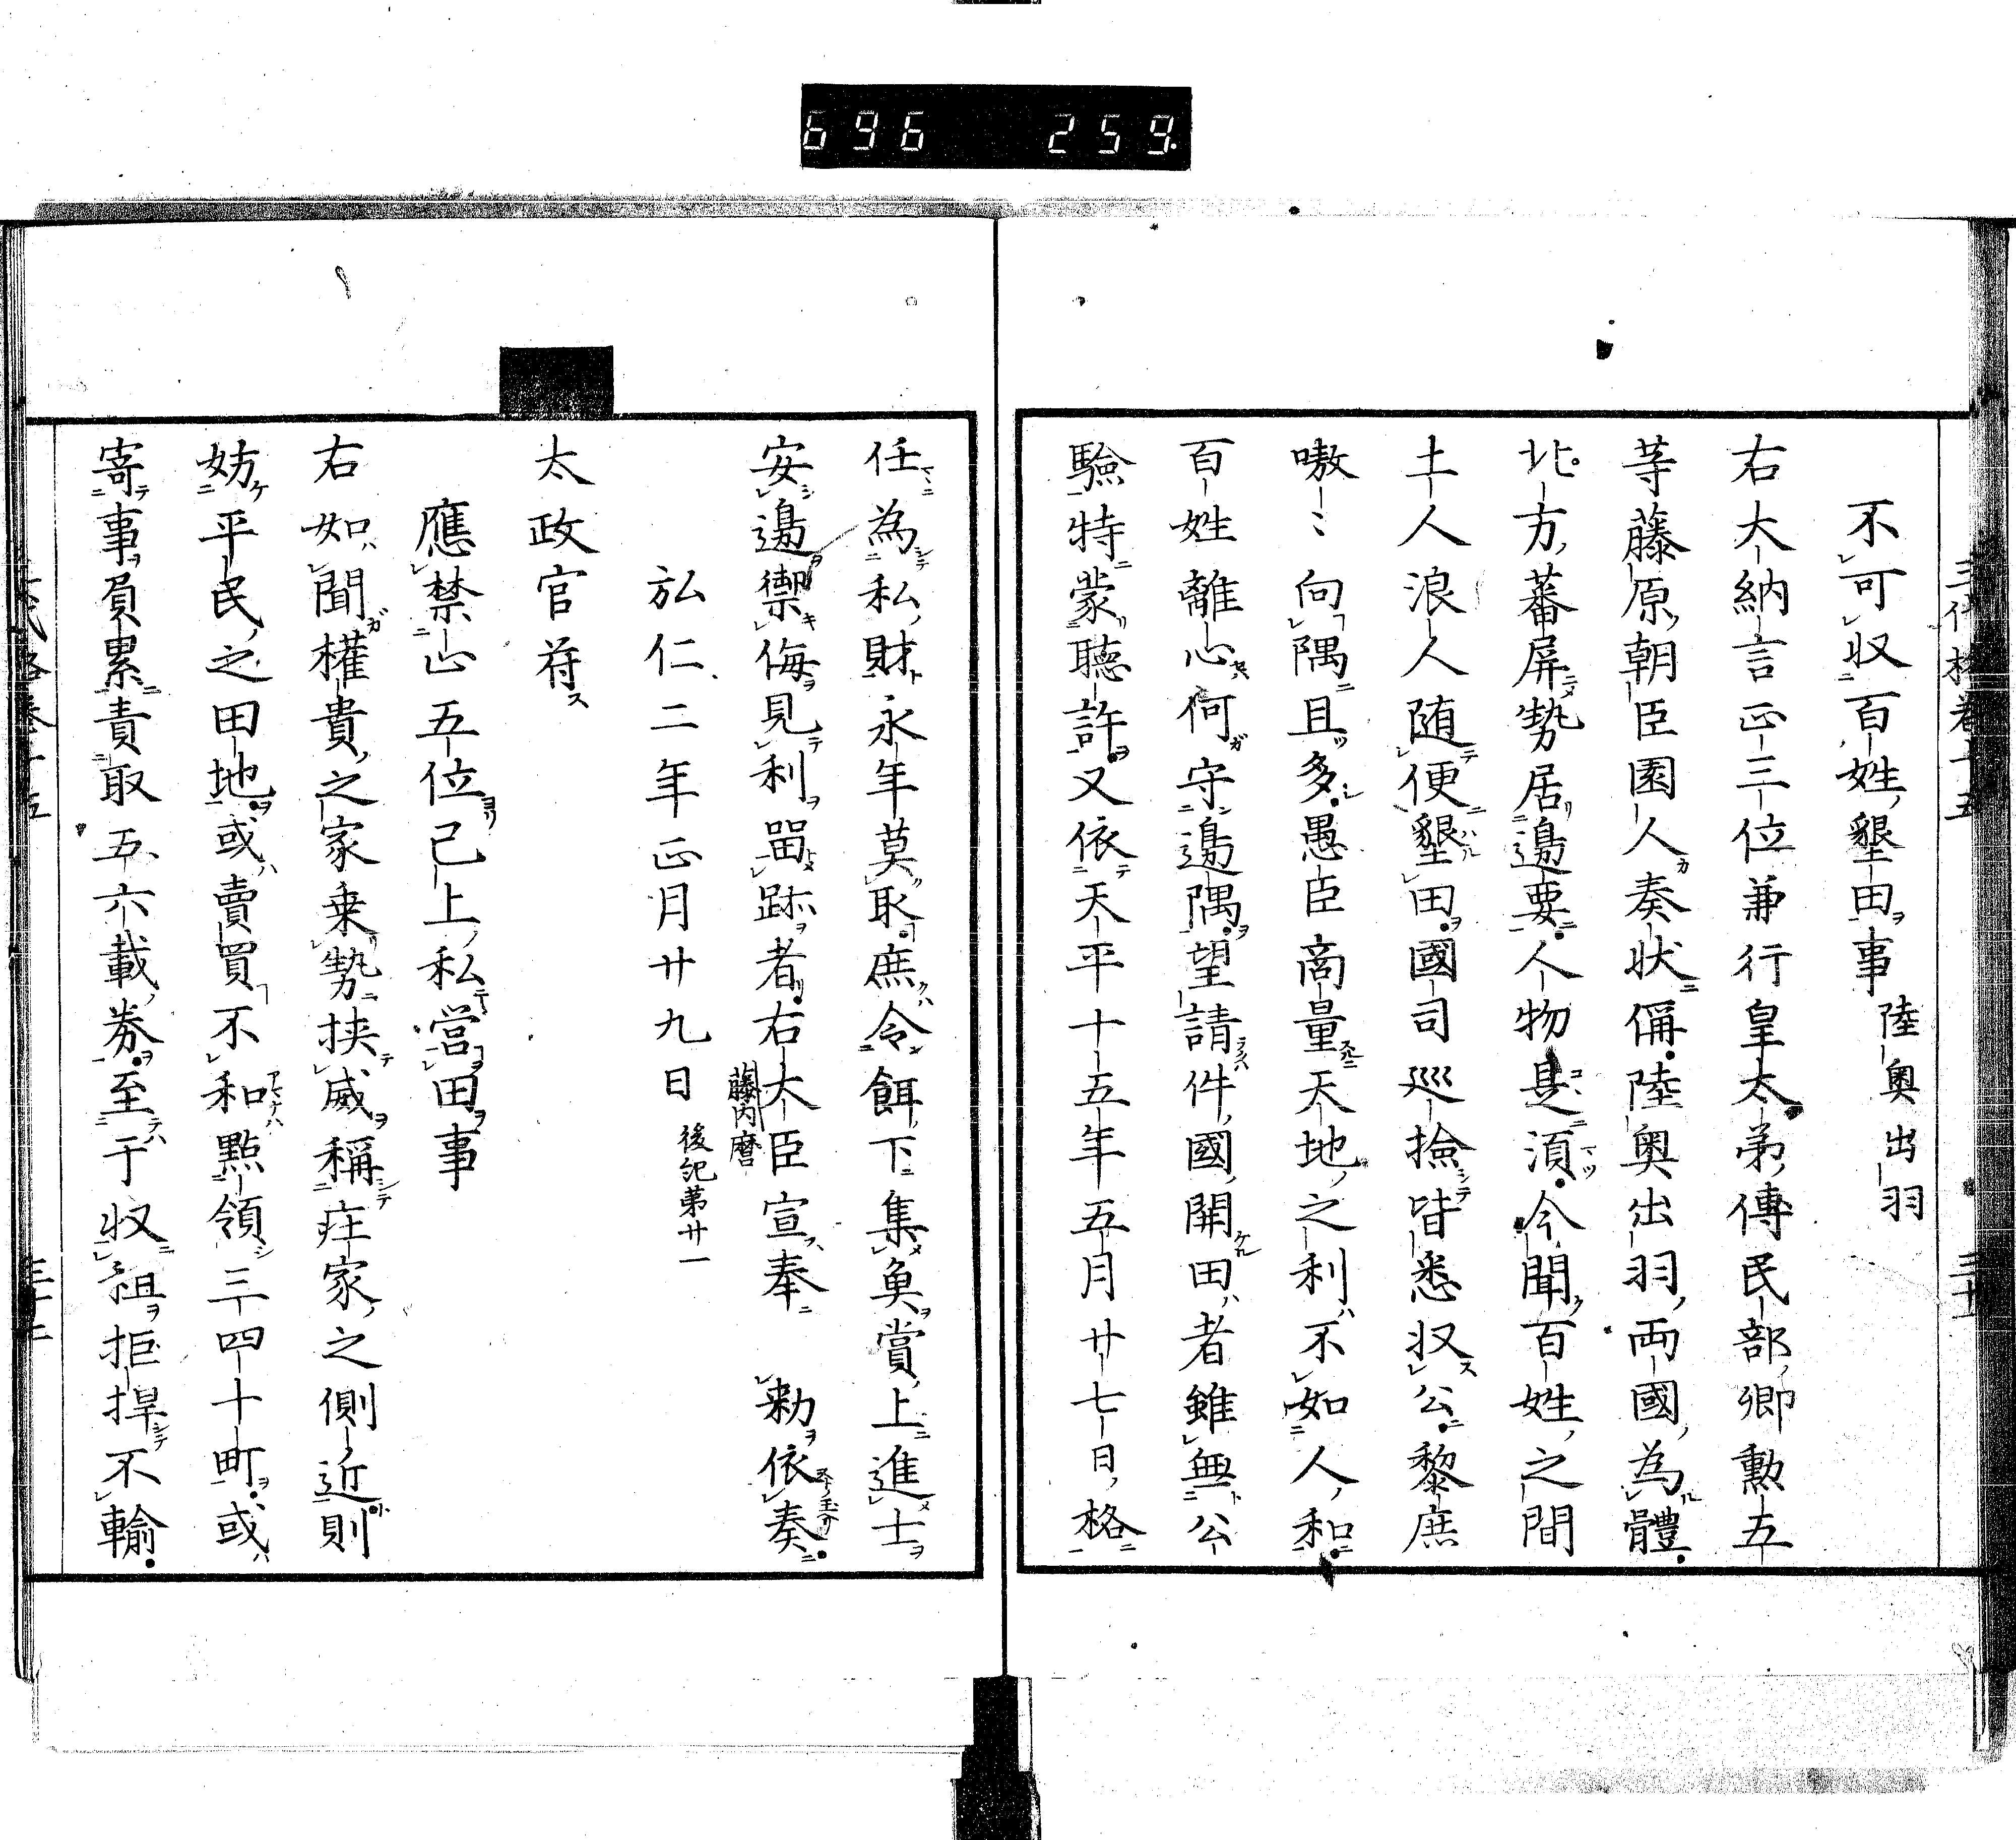 696 259
三代格巻十五 三十一
不可収百姓墾田事 陸奥出羽
右大納言正三位兼行皇太弟傳民部卿勲五
等藤原朝臣園人奏状偁陸奥出羽両國為體
北方蕃屏勢居邉要人物是湏今聞百姓之間
土人浪人随便墾田國司巡撿皆悉収公黎庶
嗷〻向隅且多愚臣商量天地之利不如人和
百姓離心何守邉隅望請件國開田者雖無公
驗特蒙聴許又依天平十五年五月廿七日格
任為私財永年莫取庶令餌下集魚賞上進士
安邉禦侮見利畱跡者右大臣宣奉 勅依奏
藤内麿
弘仁二年正月廿九日 後紀第廿一
太政官符
應禁止五位已上私営田事
右如聞權貴之家乗勢挟威稱庄家之側近則
妨平民之田地或賣買不和點領三四十町或
寄事負累責取五六載券至于収租拒捍不輸